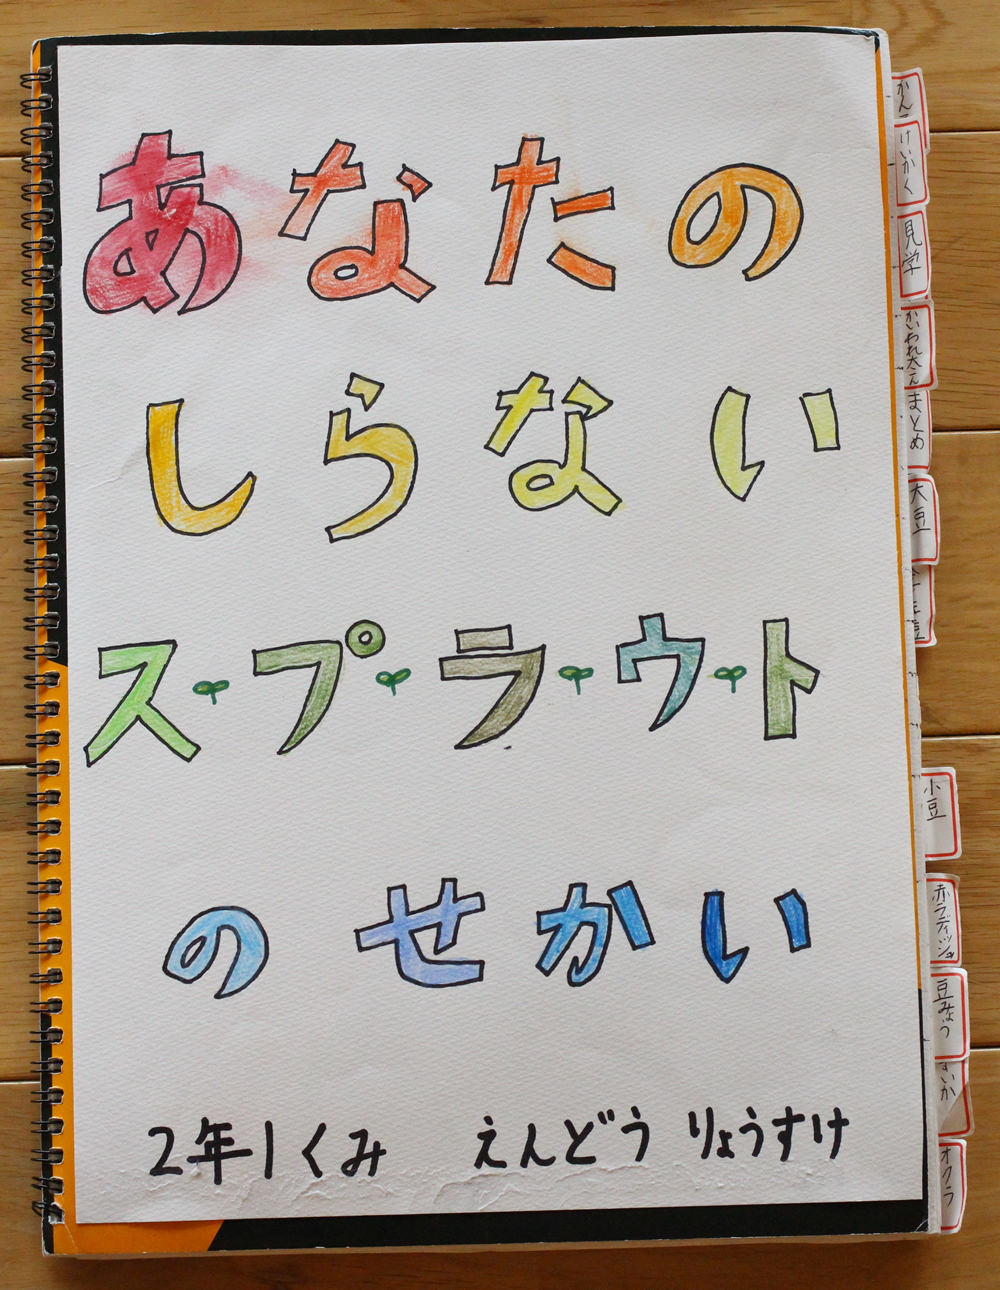 あなたの
しらない
ス・プ・ラ・ウ・ト
のせかい
2年1くみ えんどう りょうすけ
かん
けいかく
見学
かいわれ大こん
まとめ
大豆
小豆
赤ラディッシュ
豆みょう
すいか
オクラ